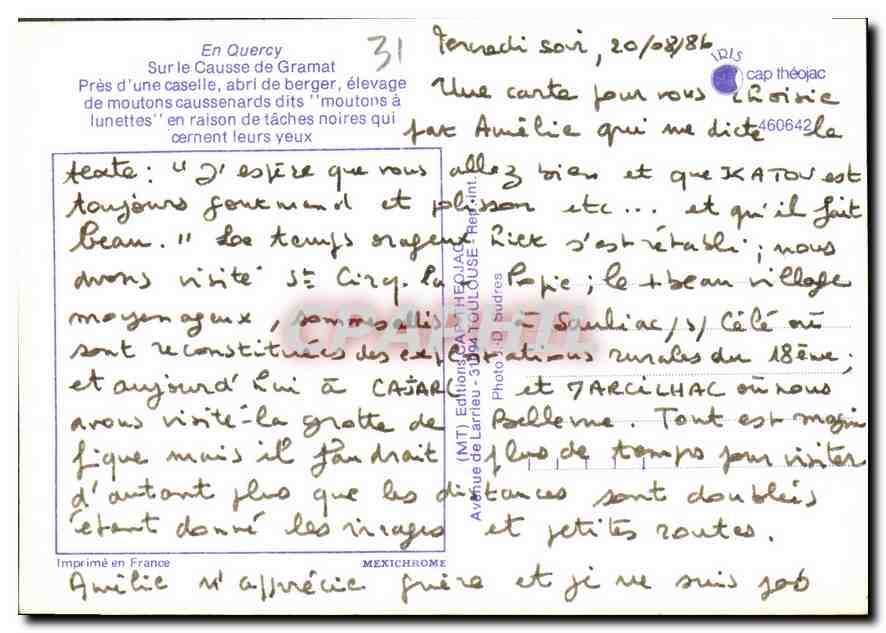 En Quercy
Sur le Causse de Gramat
Près d'une caselle, abri de berger, élevage
de moutons caussenards dits "moutons à
lunettes" en raison de tâches noires qui
cernent leurs yeux
31
Mercredi soir, 20/08/86
IRIS
cap théojac
460642
Une carte pour vous choisie
par Amélie qui me dicte le
texte : "J'espère que vous allez bien et que KATOU est
toujours gourmand et polisson etc... et qu'il fait
beau." Le temps orageux hier s'est rétabli ; nous
avons visité St Cirq. la Popie ; le + beau village
moyenageux, sommes allés à Sauliac /s/ Célé où
sont reconstituées des exploitations rurales du 18ème ;
et aujourd'hui à CAJARC et MARCILHAC où nous
avons visité la grotte de Bellevue. Tout est magni
fique mais il faudrait plus de temps pour visiter
d'autant plus que les distances sont doublées
étant donné les virages et petites routes.
Amélie n'apprécie guère et je ne suis pas
(MT) Editions CAP-THEOJAC
Avenue de Larrieu - 31094 TOULOUSE - Rep. int.
Photo J.-D. Sudres
CPARAMA
Imprimé en France
MEXICHROME